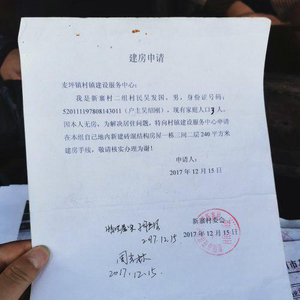 建房申请
麦坪镇村镇建设服务中心:
我是新寨村二组村民吴发国,男,身份证号码:
520111197808143011(户主吴绍刚),现有家庭人口3人,
因本人无房,为解决居住问题,特向村镇建设服务中心申请
在本组自己地内新建砖混结构房屋一栋三间二层240平方米
建房手续,敬请核实办理为谢!
申请人:
2017年12月15日
新寨村委会
2017年12月15日
2017.12.15
2017.12.15.